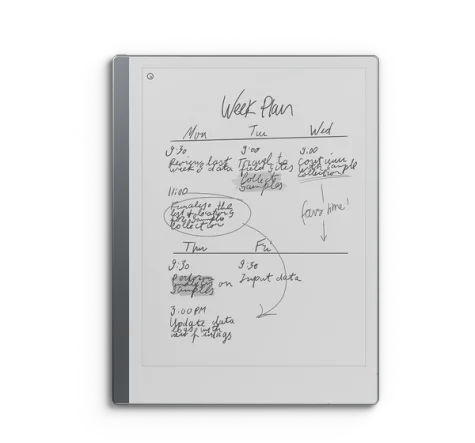 Week Plan
Mon Tue Wed
9:30
Review last
week's data
11:00
Finalise the
list of locations
for sample
collection
9:00
Travel to
field sites
Collect
samples
9:00
Continue
with sample
collection
(favo time!
Thu Fri
9:30
Perform
analysis on
samples
3:00 PM
Update data
logs with
new findings
9:30
Input data